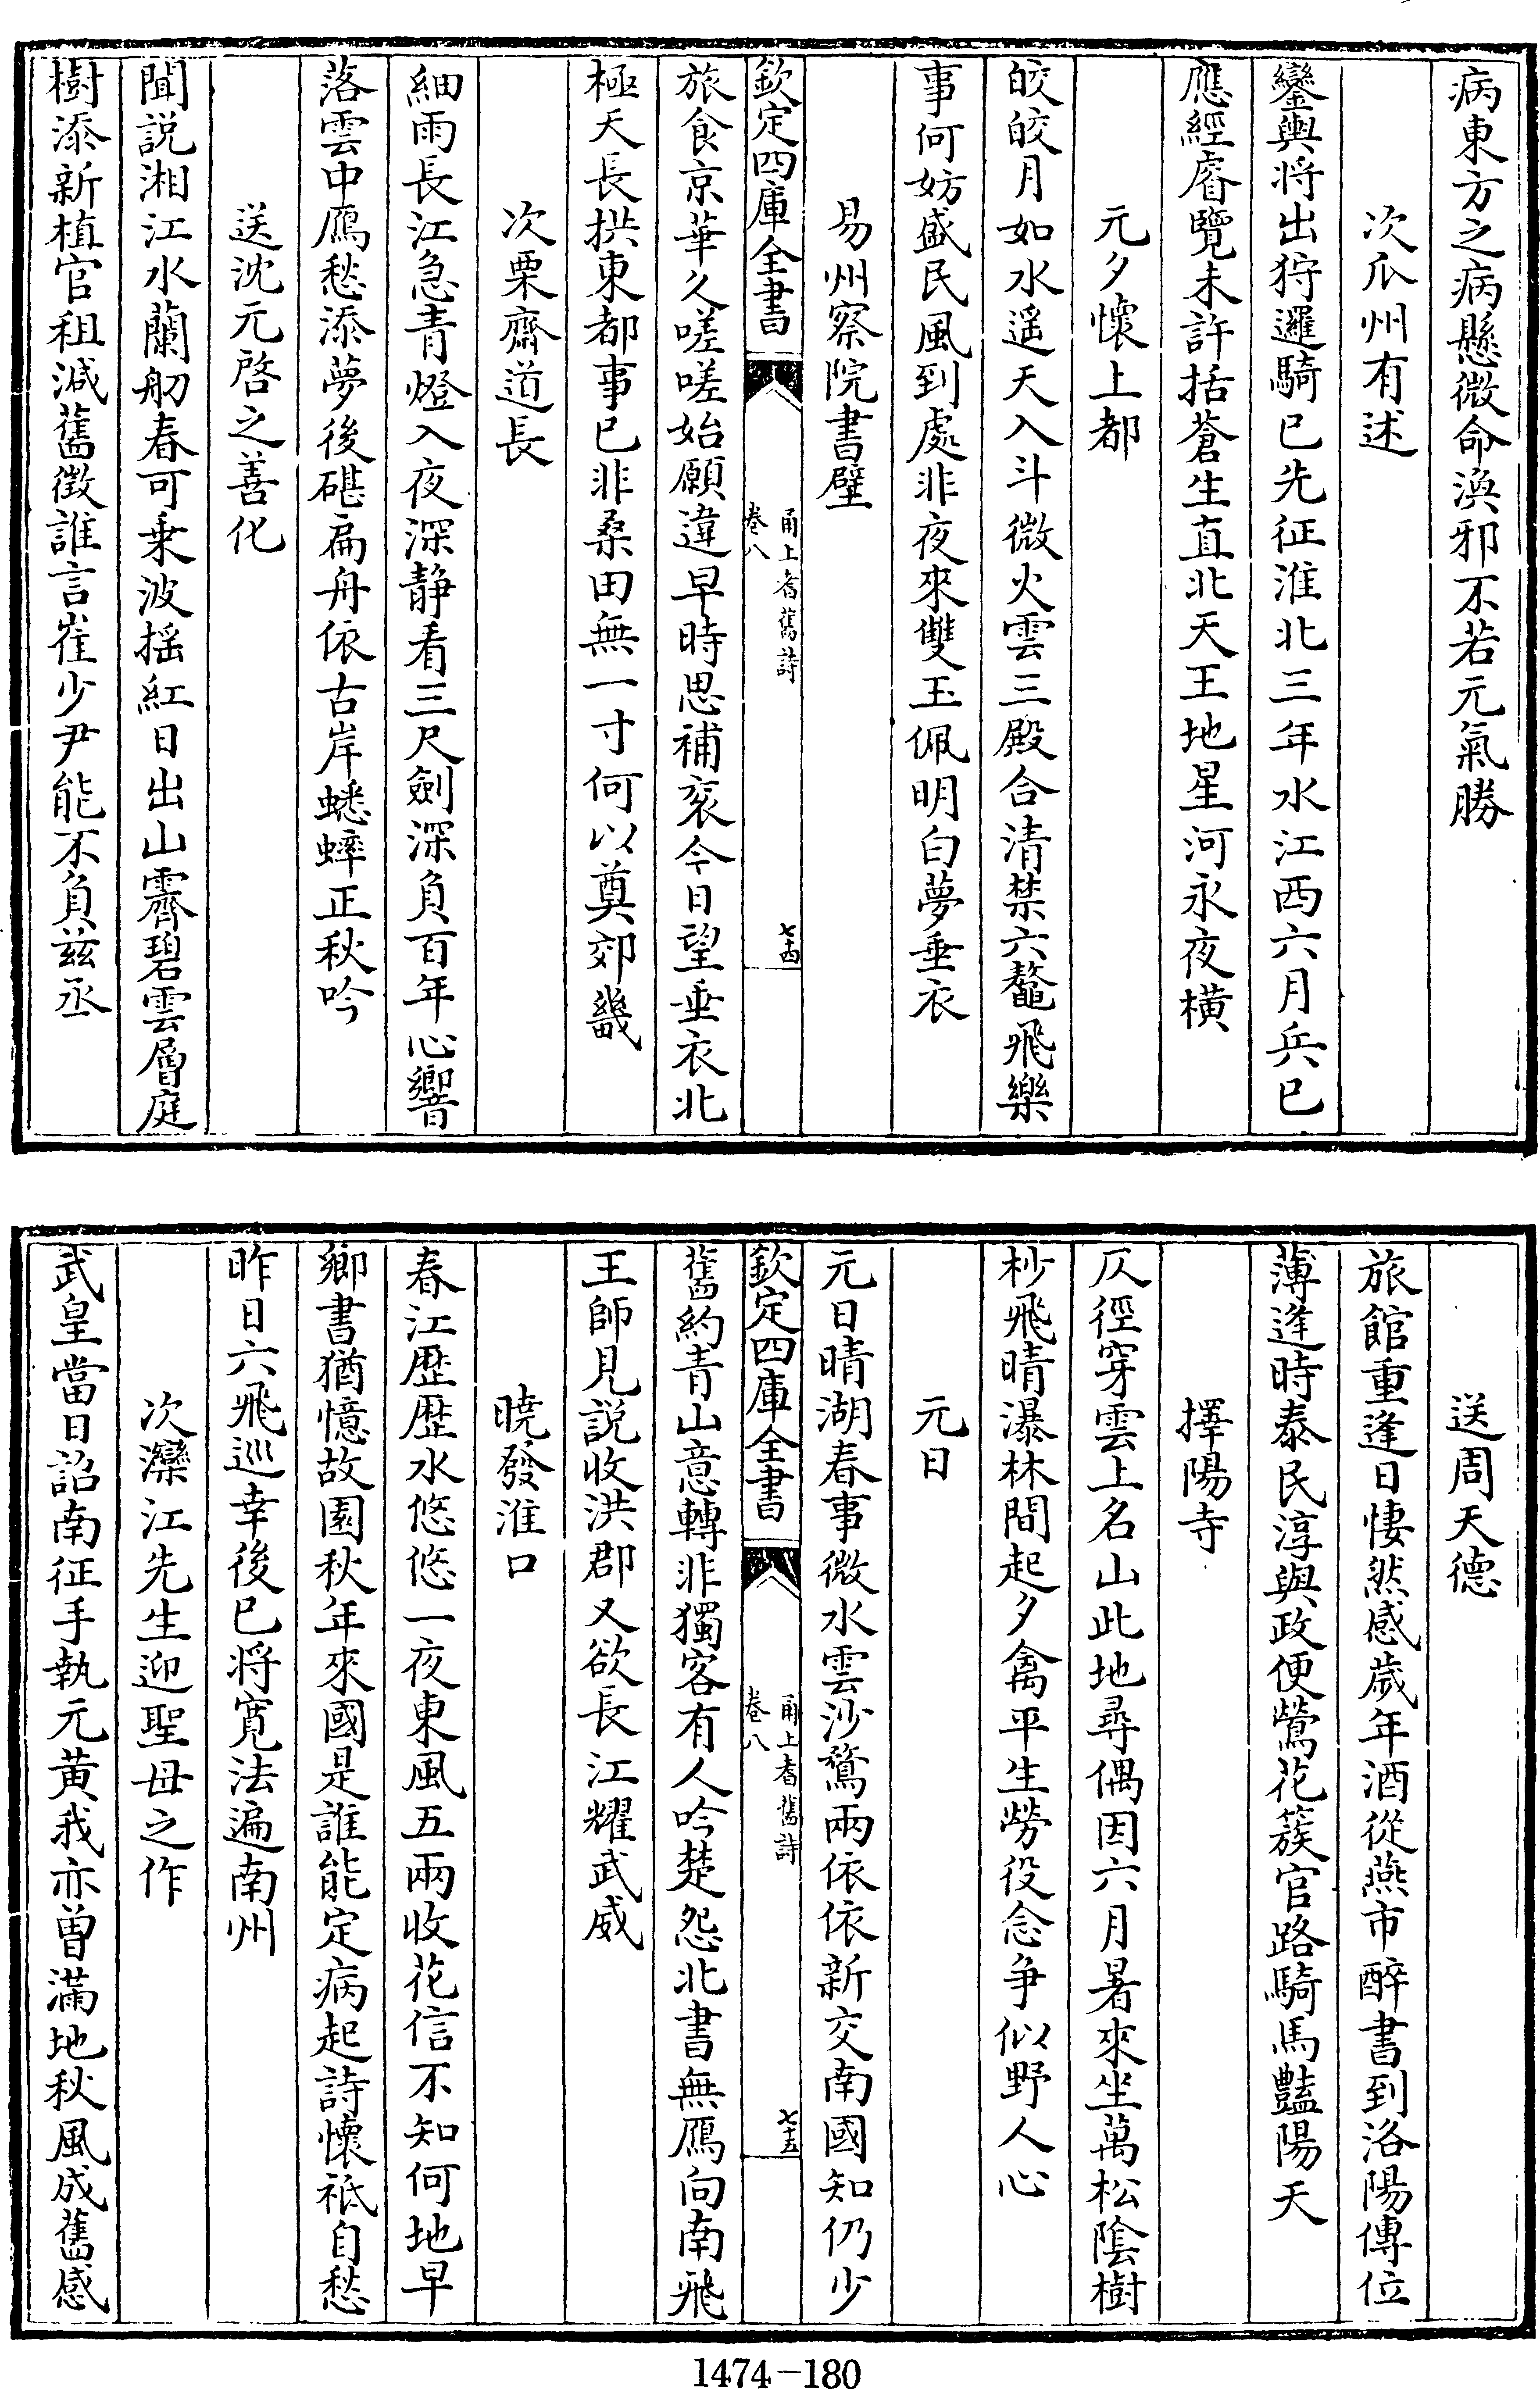 病東方之病懸微命渙邪不若元氣勝
次瓜州有述
鑾輿將出狩邏騎已先征淮北三年水江西六月兵已
應經睿覽未許括蒼生直北天王地星河永夜橫
元夕懷上都
皎皎月如水遥天入斗微火雲三殿合清禁六鼇飛樂
事何妨盛民風到處非夜來雙玉佩明白夢垂衣
易州察院書壁
欽定四庫全書
甬上耆舊詩
卷八
七十四
旅食京華久嗟嗟始願違早時思補衮今日望垂衣北
極天長拱東都事已非桑田無一寸何以奠郊畿
次栗齋道長
細雨長江急青燈入夜深静看三尺劍深負百年心響
落雲中鴈愁添夢後碪扁舟依古岸蟋蟀正秋吟
送沈元啓之善化
聞説湘江水蘭舠春可乗波揺紅日出山霽碧雲層庭
樹添新植官租減舊徵誰言崔少尹能不負兹丞
送周天德
旅館重逢日悽然感歲年酒從燕市醉書到洛陽傳位
薄逢時泰民淳與政便鶯花簇官路騎馬豔陽天
擇陽寺
仄徑穿雲上名山此地尋偶因六月暑來坐萬松陰樹
杪飛晴瀑林間起夕禽平生勞役念争似野人心
元日
元日晴湖春事微水雲沙鶩兩依依新交南國知仍少
欽定四庫全書
甬上耆舊詩
卷八
七十五
舊約青山意轉非獨客有人吟楚怨北書無鴈向南飛
王師見説收洪郡又欲長江耀武威
曉發淮口
春江歴歴水悠悠一夜東風五兩收花信不知何地早
鄉書猶憶故園秋年來國是誰能定病起詩懷祗自愁
昨日六飛巡幸後已將寛法遍南州
次灤江先生迎聖母之作
武皇當日詔南征手執元黄我亦曽滿地秋風成舊感
1474-180